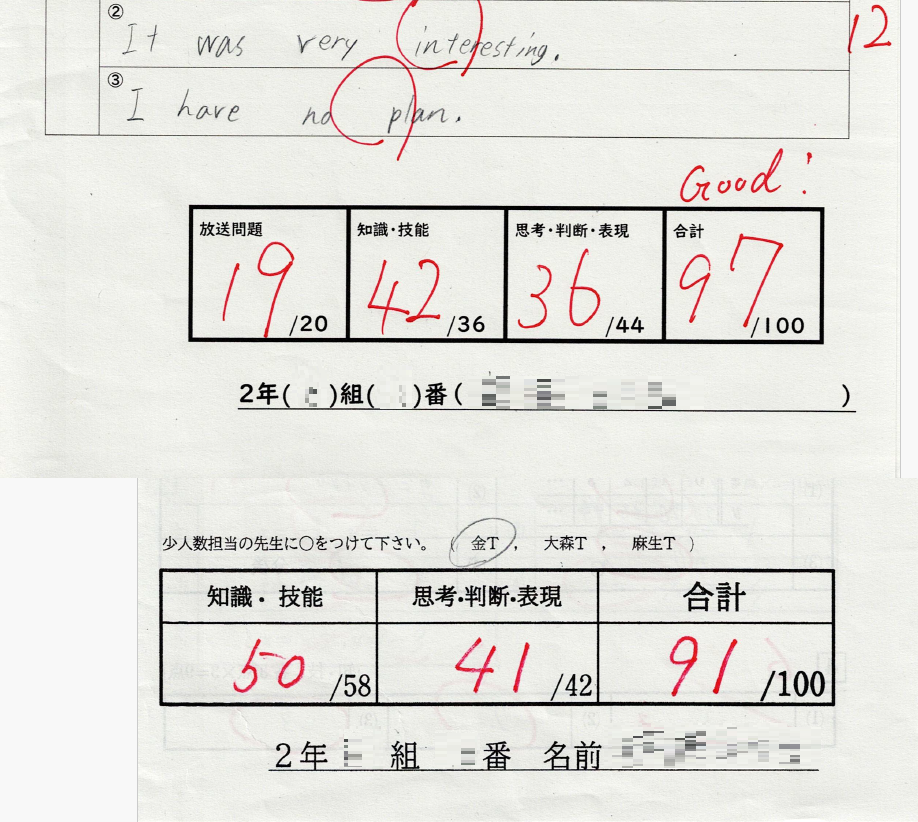 ② It was very interesting.
12
③ I have no plan.
Good!
放送問題 知識・技能 思考・判断・表現 合計
19/20 42/36 36/44 97/100
2年( )組( )番( )
少人数担当の先生に○をつけて下さい。 ( 金T , 大森T , 麻生T )
知識・技能 思考・判断・表現 合計
50/58 41/42 91/100
2年 組 番 名前